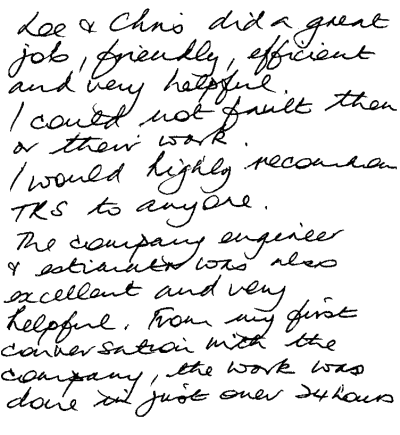 Lee & Chris did a great
job, friendly, efficient
and very helpful.
I could not fault them
or their work.
I would highly recommen
TRS to anyone.
The company engineer
& estimator was also
excellent and very
helpful. From my first
conversation with the
company, the work was
done in just over 24 hours